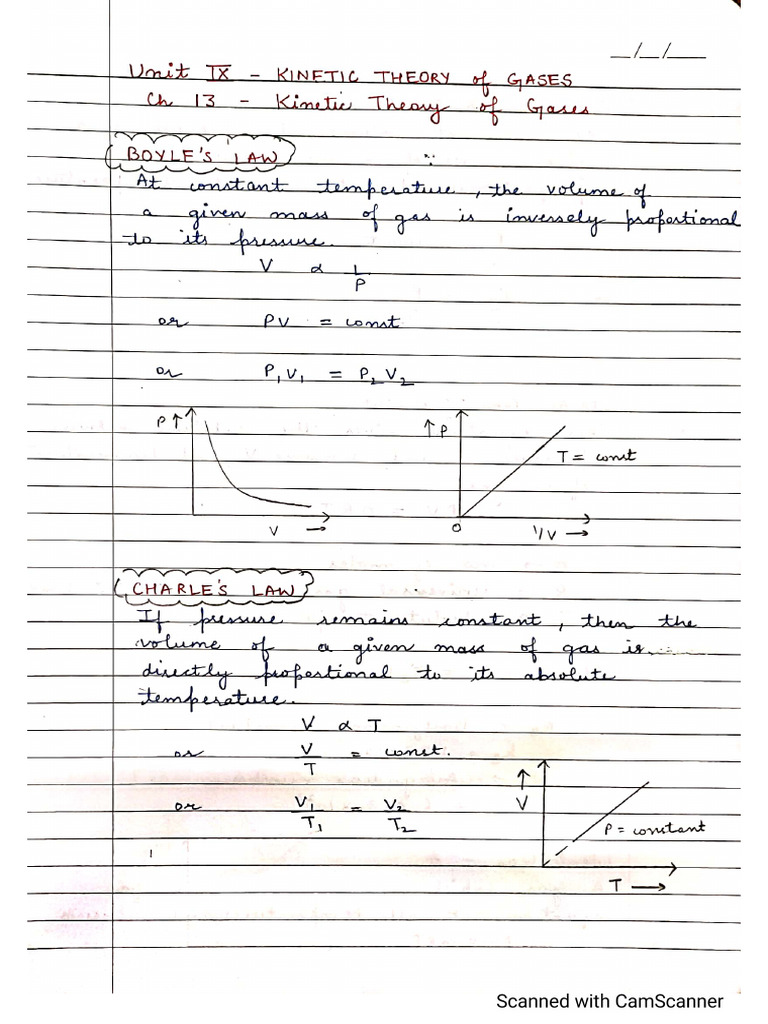 _/_/__
Unit IX - KINETIC THEORY of GASES
Ch 13 - Kinetic Theory of Gases
BOYLE'S LAW
At constant temperature, the volume of
a given mass of gas is inversely propostional
to its pressure.
V ∝ 1/P
or PV = const
or P₁V₁ = P₂V₂
P↑
V →
↑P
T = const
O
1/V →
CHARLE'S LAW
If pressure remains constant, then the
volume of a given mass of gas is
directly propostional to its absolute
temperature.
V ∝ T
or V/T = const.
or V₁/T₁ = V₂/T₂
↑
V
P = constant
T →
Scanned with CamScanner